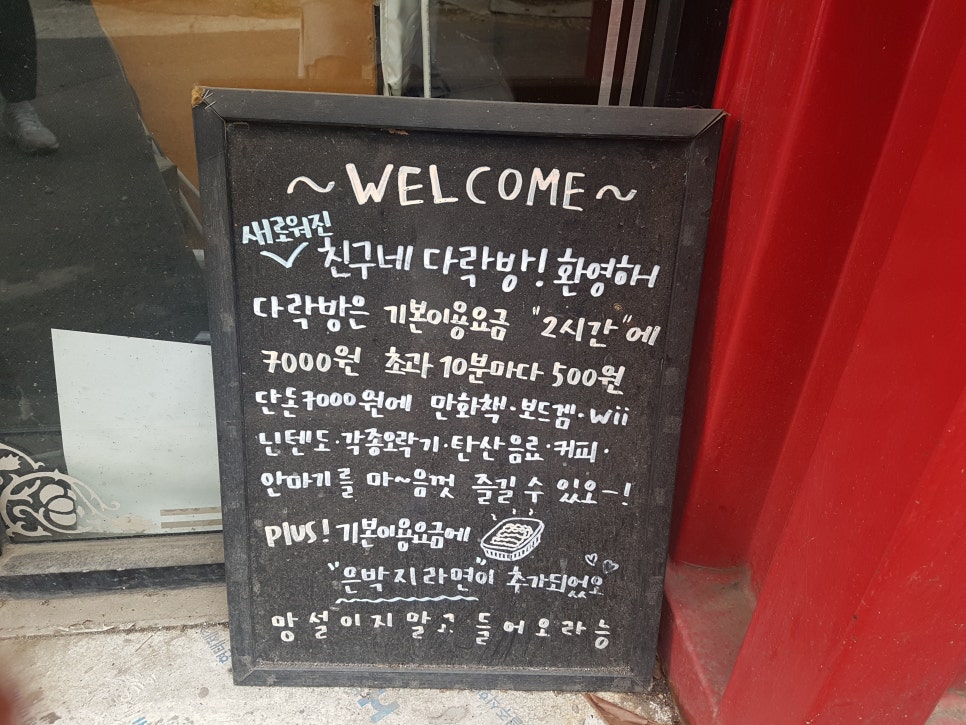 ~WELCOME~
새로워진
친구네 다락방! 환영해
다락방은 기본이용요금 "2시간"에
7000원 초과 10분마다 500원
단돈7000원에 만화책·보드겜·wii
닌텐도·각종오락기·탄산음료·커피·
안마기를 마~음껏 즐길 수 있오-!
plus! 기본이용요금에
"은박지라면"이 추가되었오
망설이지말고 들어오라능